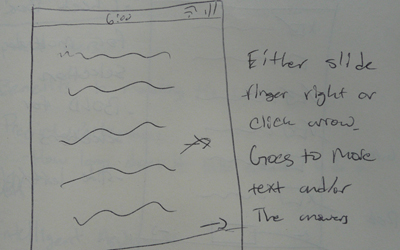 6:00
Either slide
finger right or
click arrow.
Goes to more
text and/or
The answers